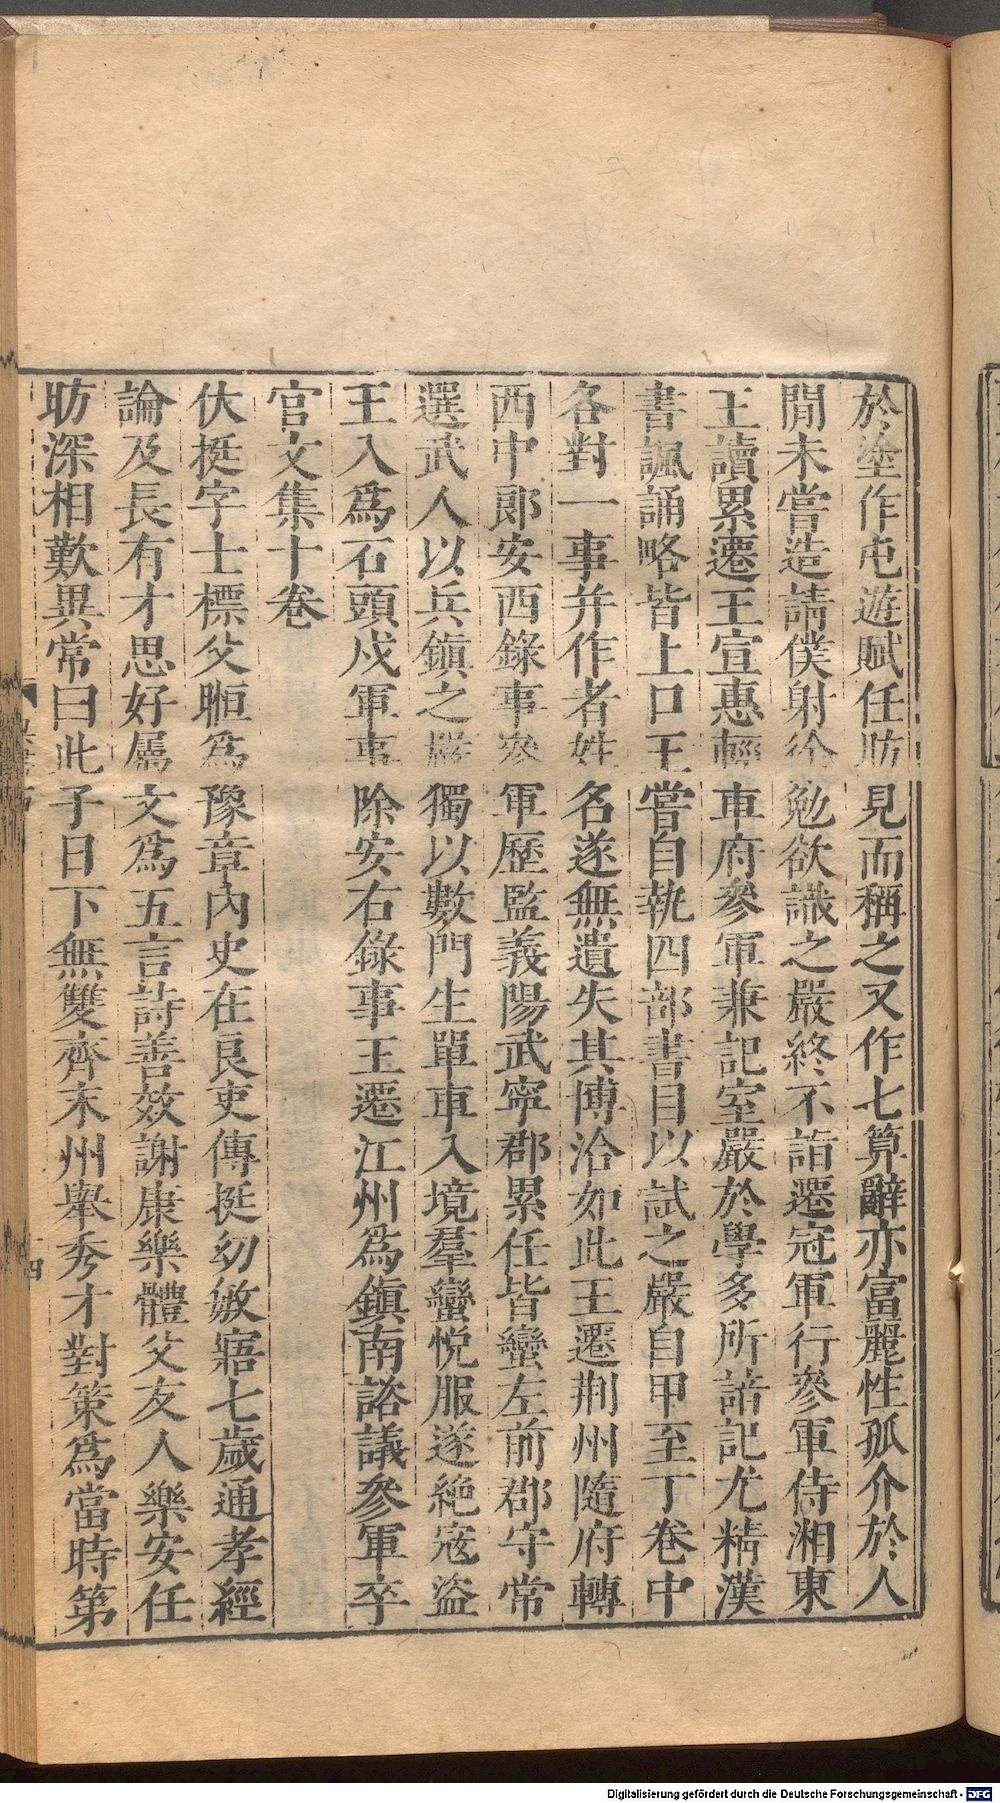 於塗作屯遊賦任昉見而稱之又作七算辭亦富麗性孤介於人
閒未嘗造請僕射徐勉欲識之嚴終不詣遷冠軍行參軍侍湘東
王讀累遷王宣惠輕車府參軍兼記室嚴於學多所諳記尤精漢
書諷誦略皆上口王嘗自執四部書目以試之嚴自甲至丁卷中
各對一事并作者姓名遂無遺失其博洽如此王遷荆州隨府轉
西中郎安西錄事參軍歷監義陽武寧郡累任皆蠻左前郡守常
選武人以兵鎮之嚴獨以數門生單車入境羣蠻悅服遂絶寇盜
王入爲石頭戍軍事除安右錄事王遷江州爲鎮南諮議參軍卒
官文集十卷
伏挺字士標父暅爲豫章內史在良吏傳挺幼敏寤七歲通孝經
論及長有才思好屬文爲五言詩善效謝康樂體父友人樂安任
昉深相歎異常曰此子日下無雙齊末州舉秀才對策爲當時第
四
Digitalisierung gefördert durch die Deutsche Forschungsgemeinschaft - DFG